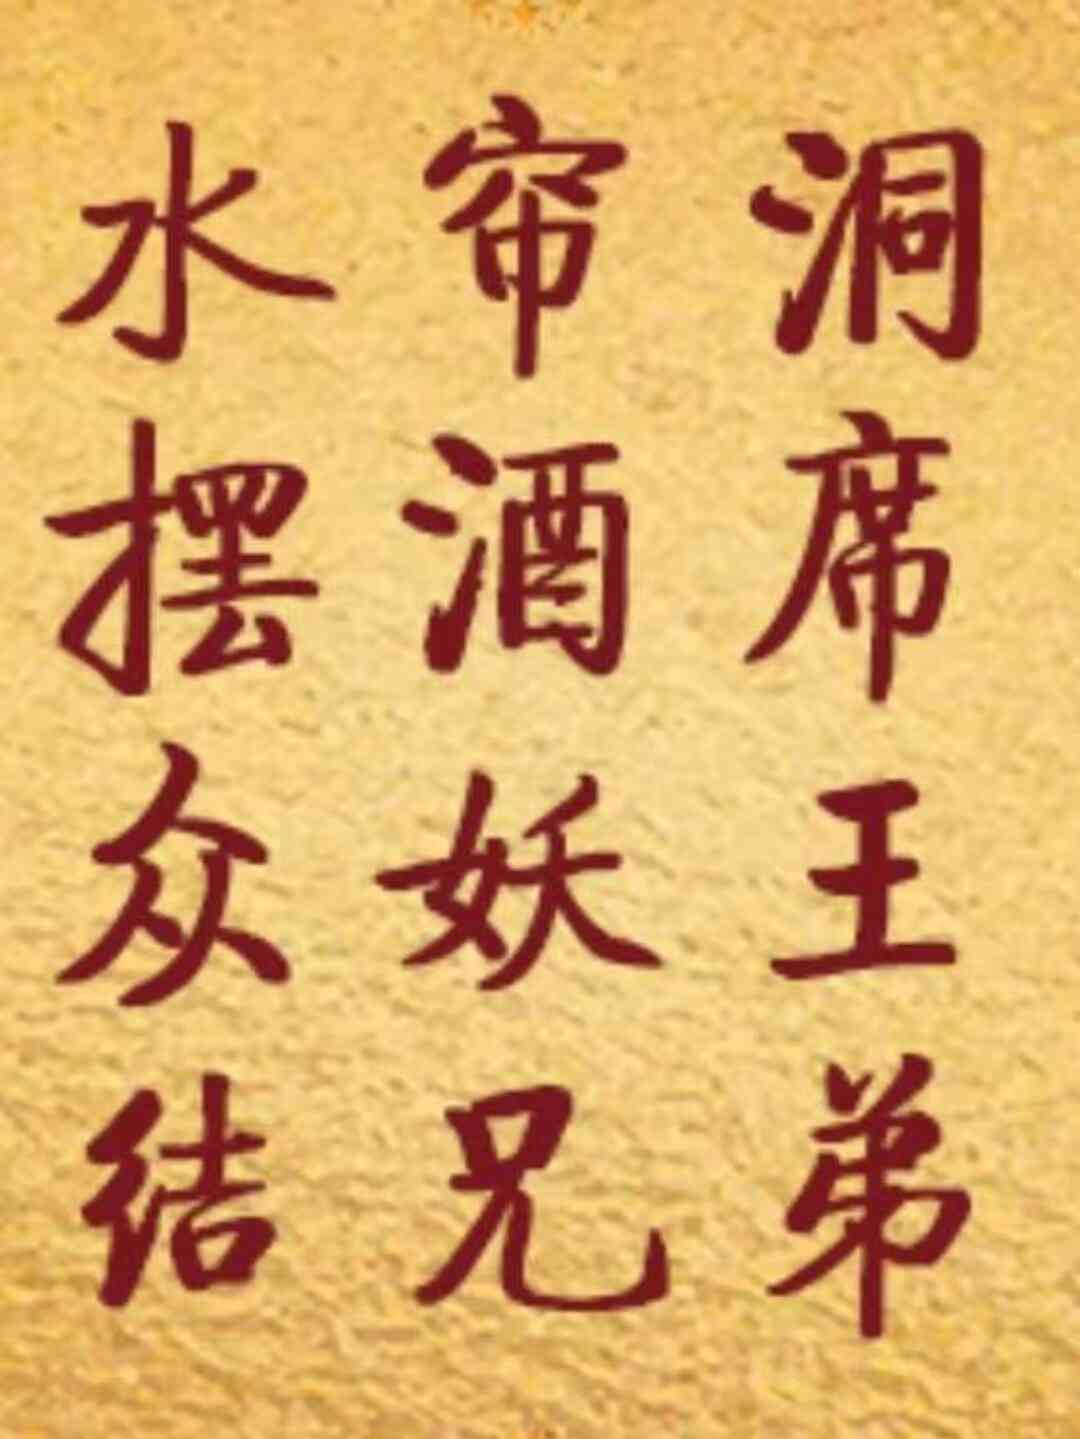 水帘洞
摆酒席
众妖王
结兄弟